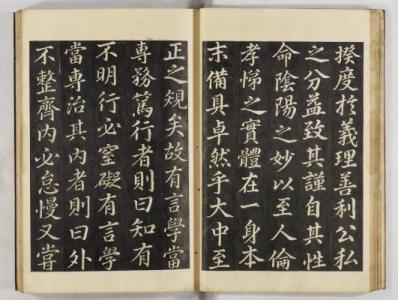 揆度於義理善利公私
之分益致其謹自其性
命陰陽之妙以至人倫
孝悌之實體在一身本
末備具卓然乎大中至
正之規矣故有言學當
專務篤行者則曰知有
不明行必窒礙有言學
當專治其內者則曰外
不整齊內必怠慢又嘗